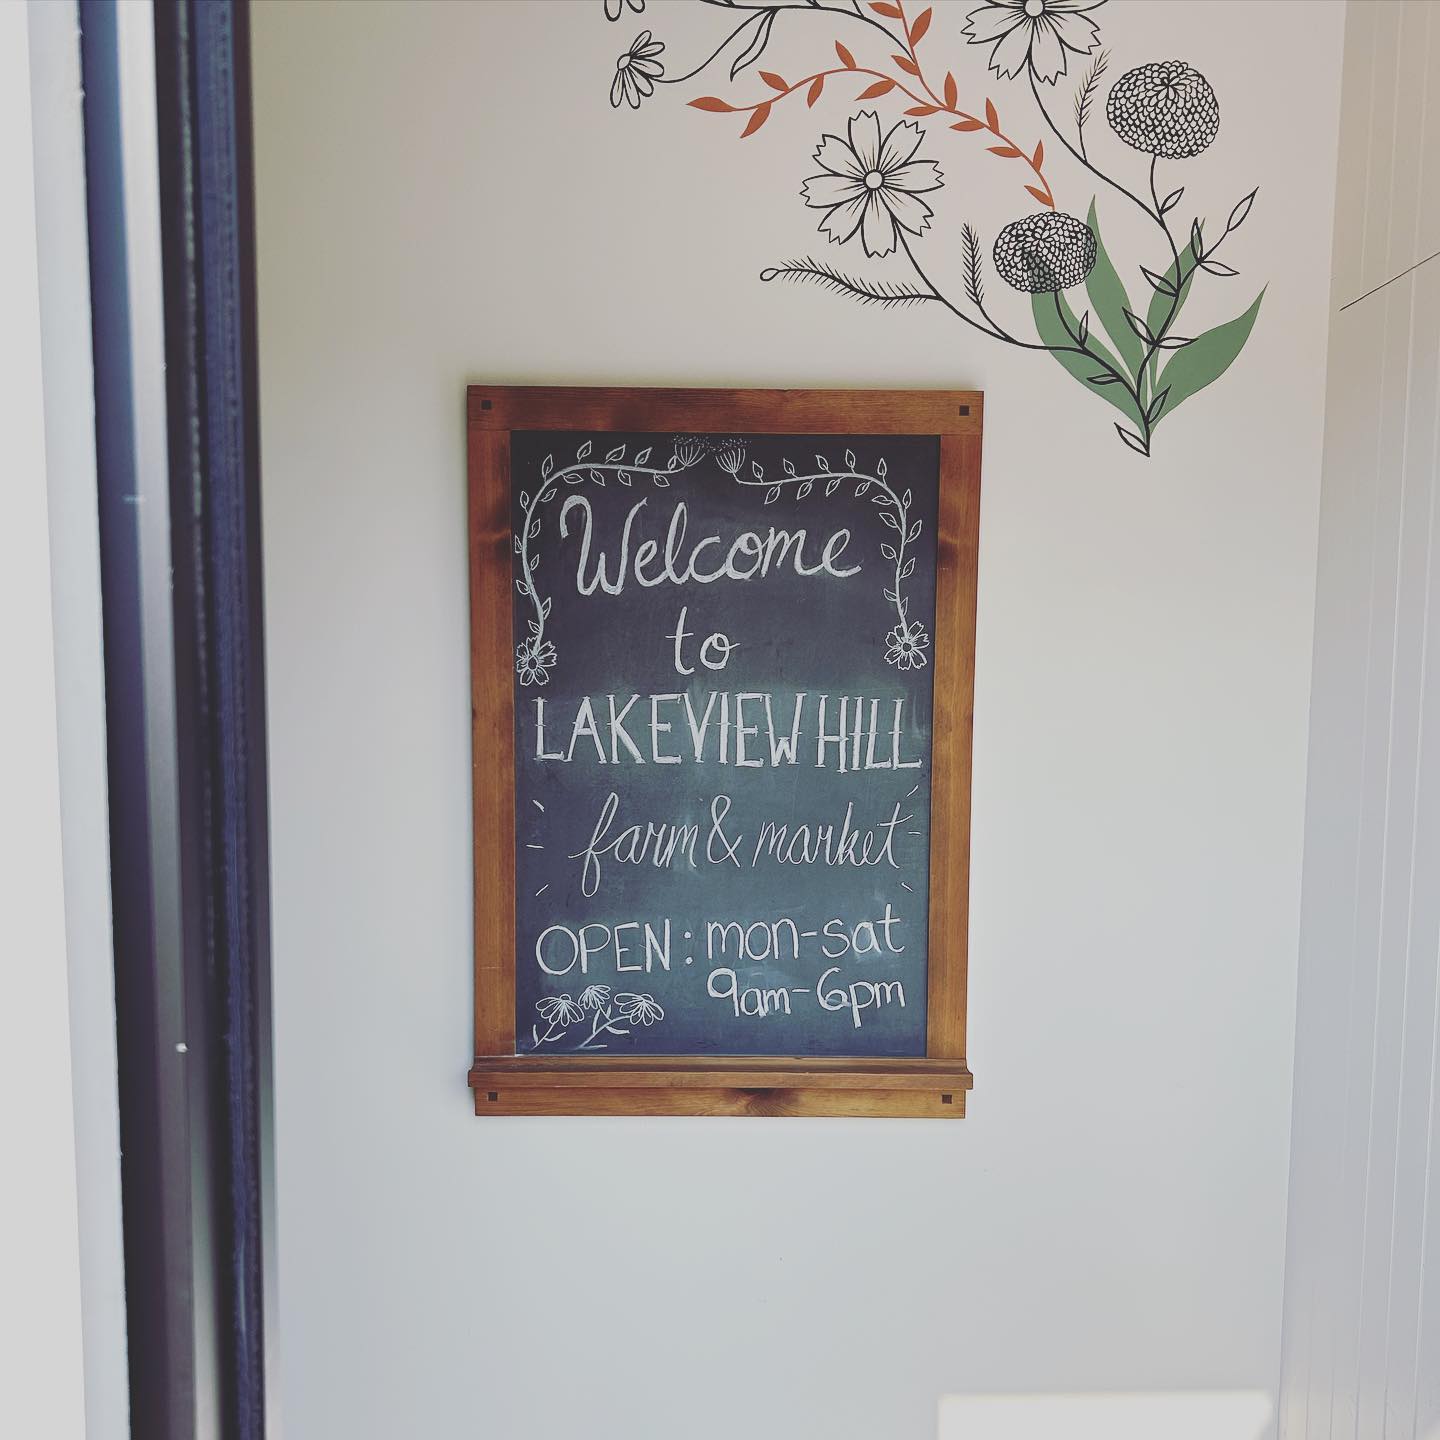 Welcome
to
LAKEVIEW HILL
farm & market
OPEN: mon-sat
9am-6pm